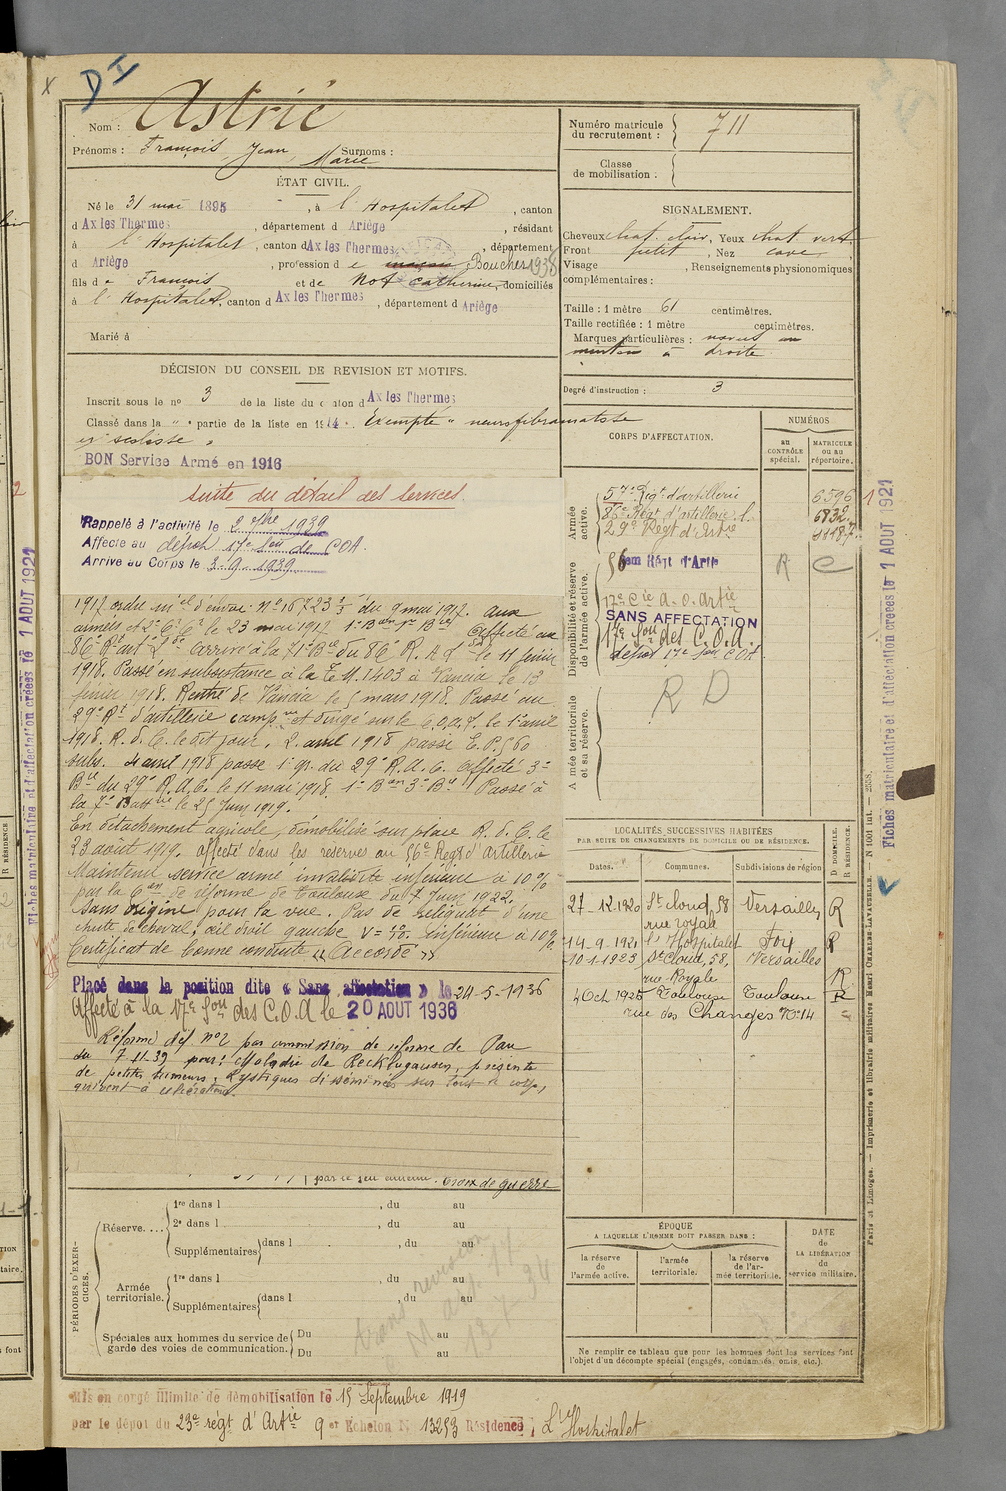 D I
X
Nom : Astrié
Prénoms : François Jean Marie Surnoms :
ÉTAT CIVIL.
Né le 31 mai 1895, à l'Hospitalet, canton
d Ax les Thermes, département d Ariège, résidant
à l'Hospitalet, canton d Ax les Thermes, département
d Ariège, profession de maçon Boucher 1938
fils de François et de Not Catherine, domiciliés
à l'Hospitalet, canton d Ax les Thermes, département d Ariège
Marié à
DÉCISION DU CONSEIL DE REVISION ET MOTIFS.
Inscrit sous le no 3 de la liste du canton d Ax les Thermes
Classé dans la " " partie de la liste en 1914. Exempté " neurofibromatose
et scoliose "
BON Service Armé en 1916
suite du détail des services.
Rappelé à l'activité le 2 7bre 1939
Affecté au dépôt 17e Son de COA.
Arrivé au Corps le 3-9-1939
1917 ordre mel d'envoi No 16723 1/3 du 9 mai 1917. aux
armées et 2e C. C. le 23 mai 1917 1e Bon 1e Bie affecté au
86e Rt art Lde arrivé à la 71e Bie du 86e R. A. L le 11 février
1918. Passé en subsistance à la T. M. 1403 à Vancia le 13
février 1918. Rentré de Vancia le 5 mars 1918. Passé au
29e Rt d'artillerie campne et dirigé sur le C.O.A.J. le 1e avril
1918. R. d. C. le dit jour. 2 avril 1918 passe E. P. 560
subs. 4 avril 1918 passe 1e gr. du 29e R. A. C. affecté 3e
Bie du 29e R. A. C. le 11 mai 1918. 1e Bon 3e Bie Passé à
la 7e Battrie le 25 Juin 1919.
En détachement agricole, démobilisé sur place R. d. C. le
23 août 1919. affecté dans les réserves au 56e Regt d'Artillerie
Maintenu service armé invalidité inférieure à 10 %
par la Con de réforme de Toulouse du 7 Juin 1922.
Sans origine pour la vue. Pas de reliquat d'une
chute de cheval, œil droit gauche V = inférieure à 10 %
Certificat de bonne conduite " Accordé "
Placé dans la position dite « Sans affectation » le 24-5-1936
Affecté à la 17e Son des C.O.A le 20 AOUT 1936
Réformé déf no 2 par commission de réforme de Pau
du 7.11.39 pour : Maladie de Recklingausen, présente
de petites tumeurs, kystiques disséminées sur tout le corps,
par le feu ennemi. Croix de guerre
PÉRIODES D'EXERCICES.
Réserve....
1re dans l , du au
2e dans l , du au
Supplémentaires dans l , du au
Armée territoriale.
1re dans l , du au
Supplémentaires dans l , du au
Spéciales aux hommes du service de garde des voies de communication.
Du au
Du au
Mis en congé illimité de démobilisation le 15 Septembre 1919
par le dépôt du 23e régt d'Artie 9er Echelon N° 13253 Résidence L'Hospitalet
Numéro matricule du recrutement : 711
Classe de mobilisation :
SIGNALEMENT.
Cheveux chat. clair, Yeux chat vert
Front petit, Nez cave
Visage , Renseignements physionomiques
complémentaires :
Taille : 1 mètre 61 centimètres.
Taille rectifiée : 1 mètre centimètres.
Marques particulières : naevus au
menton à droite.
Degré d'instruction : 3
CORPS D'AFFECTATION.
NUMÉROS
au CONTRÔLE spécial.
MATRICULE ou au répertoire.
Armée active.
57e Regt d'artillerie 6596
86e Regt d'artillerie L. 6832
29e Regt d'Artie
Disponibilité et réserve de l'armée active.
56eme Régt d'Artie R
17e Cie d. O. Artie
SANS AFFECTATION
17e Son des C.O.A.
dépôt 17e Son COA
Armée territoriale et sa réserve.
R D
LOCALITÉS SUCCESSIVES HABITÉES
PAR SUITE DE CHANGEMENTS DE DOMICILE OU DE RÉSIDENCE.
D DOMICILE.
R RÉSIDENCE.
Dates. Communes. Subdivisions de région
27-12-1920 St Cloud, 58 rue royale Versailles R
14-9-1921 L'Hospitalet Foix R
10-1-1923 St Cloud, 58, rue Royale Versailles R
4 Oct 1925 Toulouse rue des Changes No 14 Toulouse R
ÉPOQUE
A LAQUELLE L'HOMME DOIT PASSER DANS :
DATE de LA LIBÉRATION du service militaire.
la réserve de l'armée active.
l'armée territoriale.
la réserve de l'armée territoriale.
Ne remplir ce tableau que pour les hommes dont les services font
l'objet d'un décompte spécial (engagés, condamnés, omis, etc.).
Fiches matriculaire et d'affectation créées le 1 AOUT 1921
Fiches matriculaire et d'affectation créées le 1 AOUT 1921
Paris et Limoges. — Imprimerie et librairie militaires Henri CHARLES-LAVAUZELLE. — N 1001 int. — 2558.